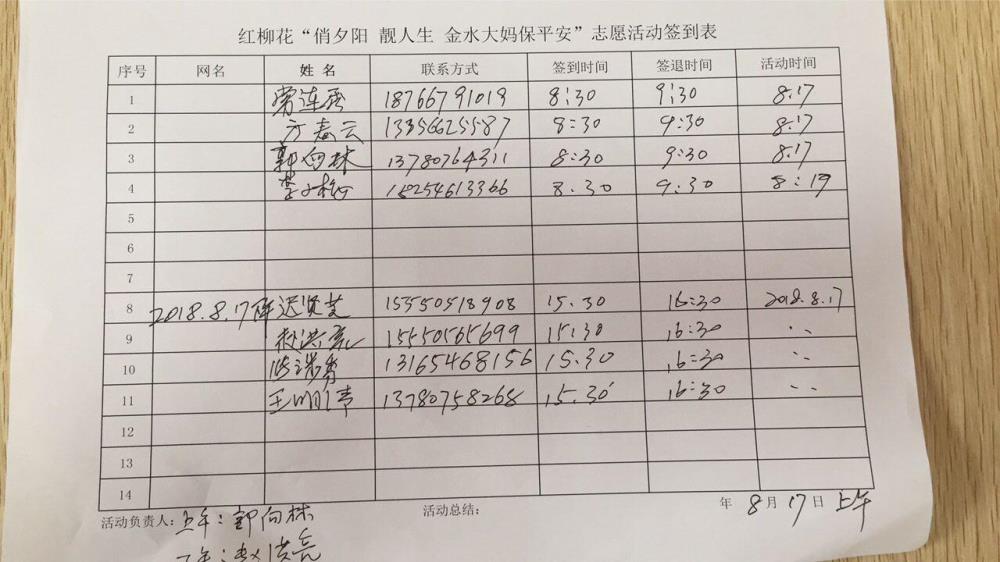 红柳花“俏夕阳 靓人生 金水大妈保平安”志愿活动签到表
序号 网名 姓名 联系方式 签到时间 签退时间 活动时间
1 18766791019 8:30 9:30 8.17
2 方春云 13356625587 8:30 9:30 8.17
3 郭向林 13780764311 8:30 9:30 8.17
4 15254613366 8.30 9.30 8:19
5
6
7
8 2018.8.17 迟贤芝 15350518908 15.30 16:30 2018.8.17
9 赵洪亮 15550565699 15:30 16:30
10 13165468156 15.30 16:30
11 王明青 13780758268 15.30 16:30
12
13
14
活动负责人: 上午:郭向林 活动总结: 年 8月17日 上午
下午:赵洪亮